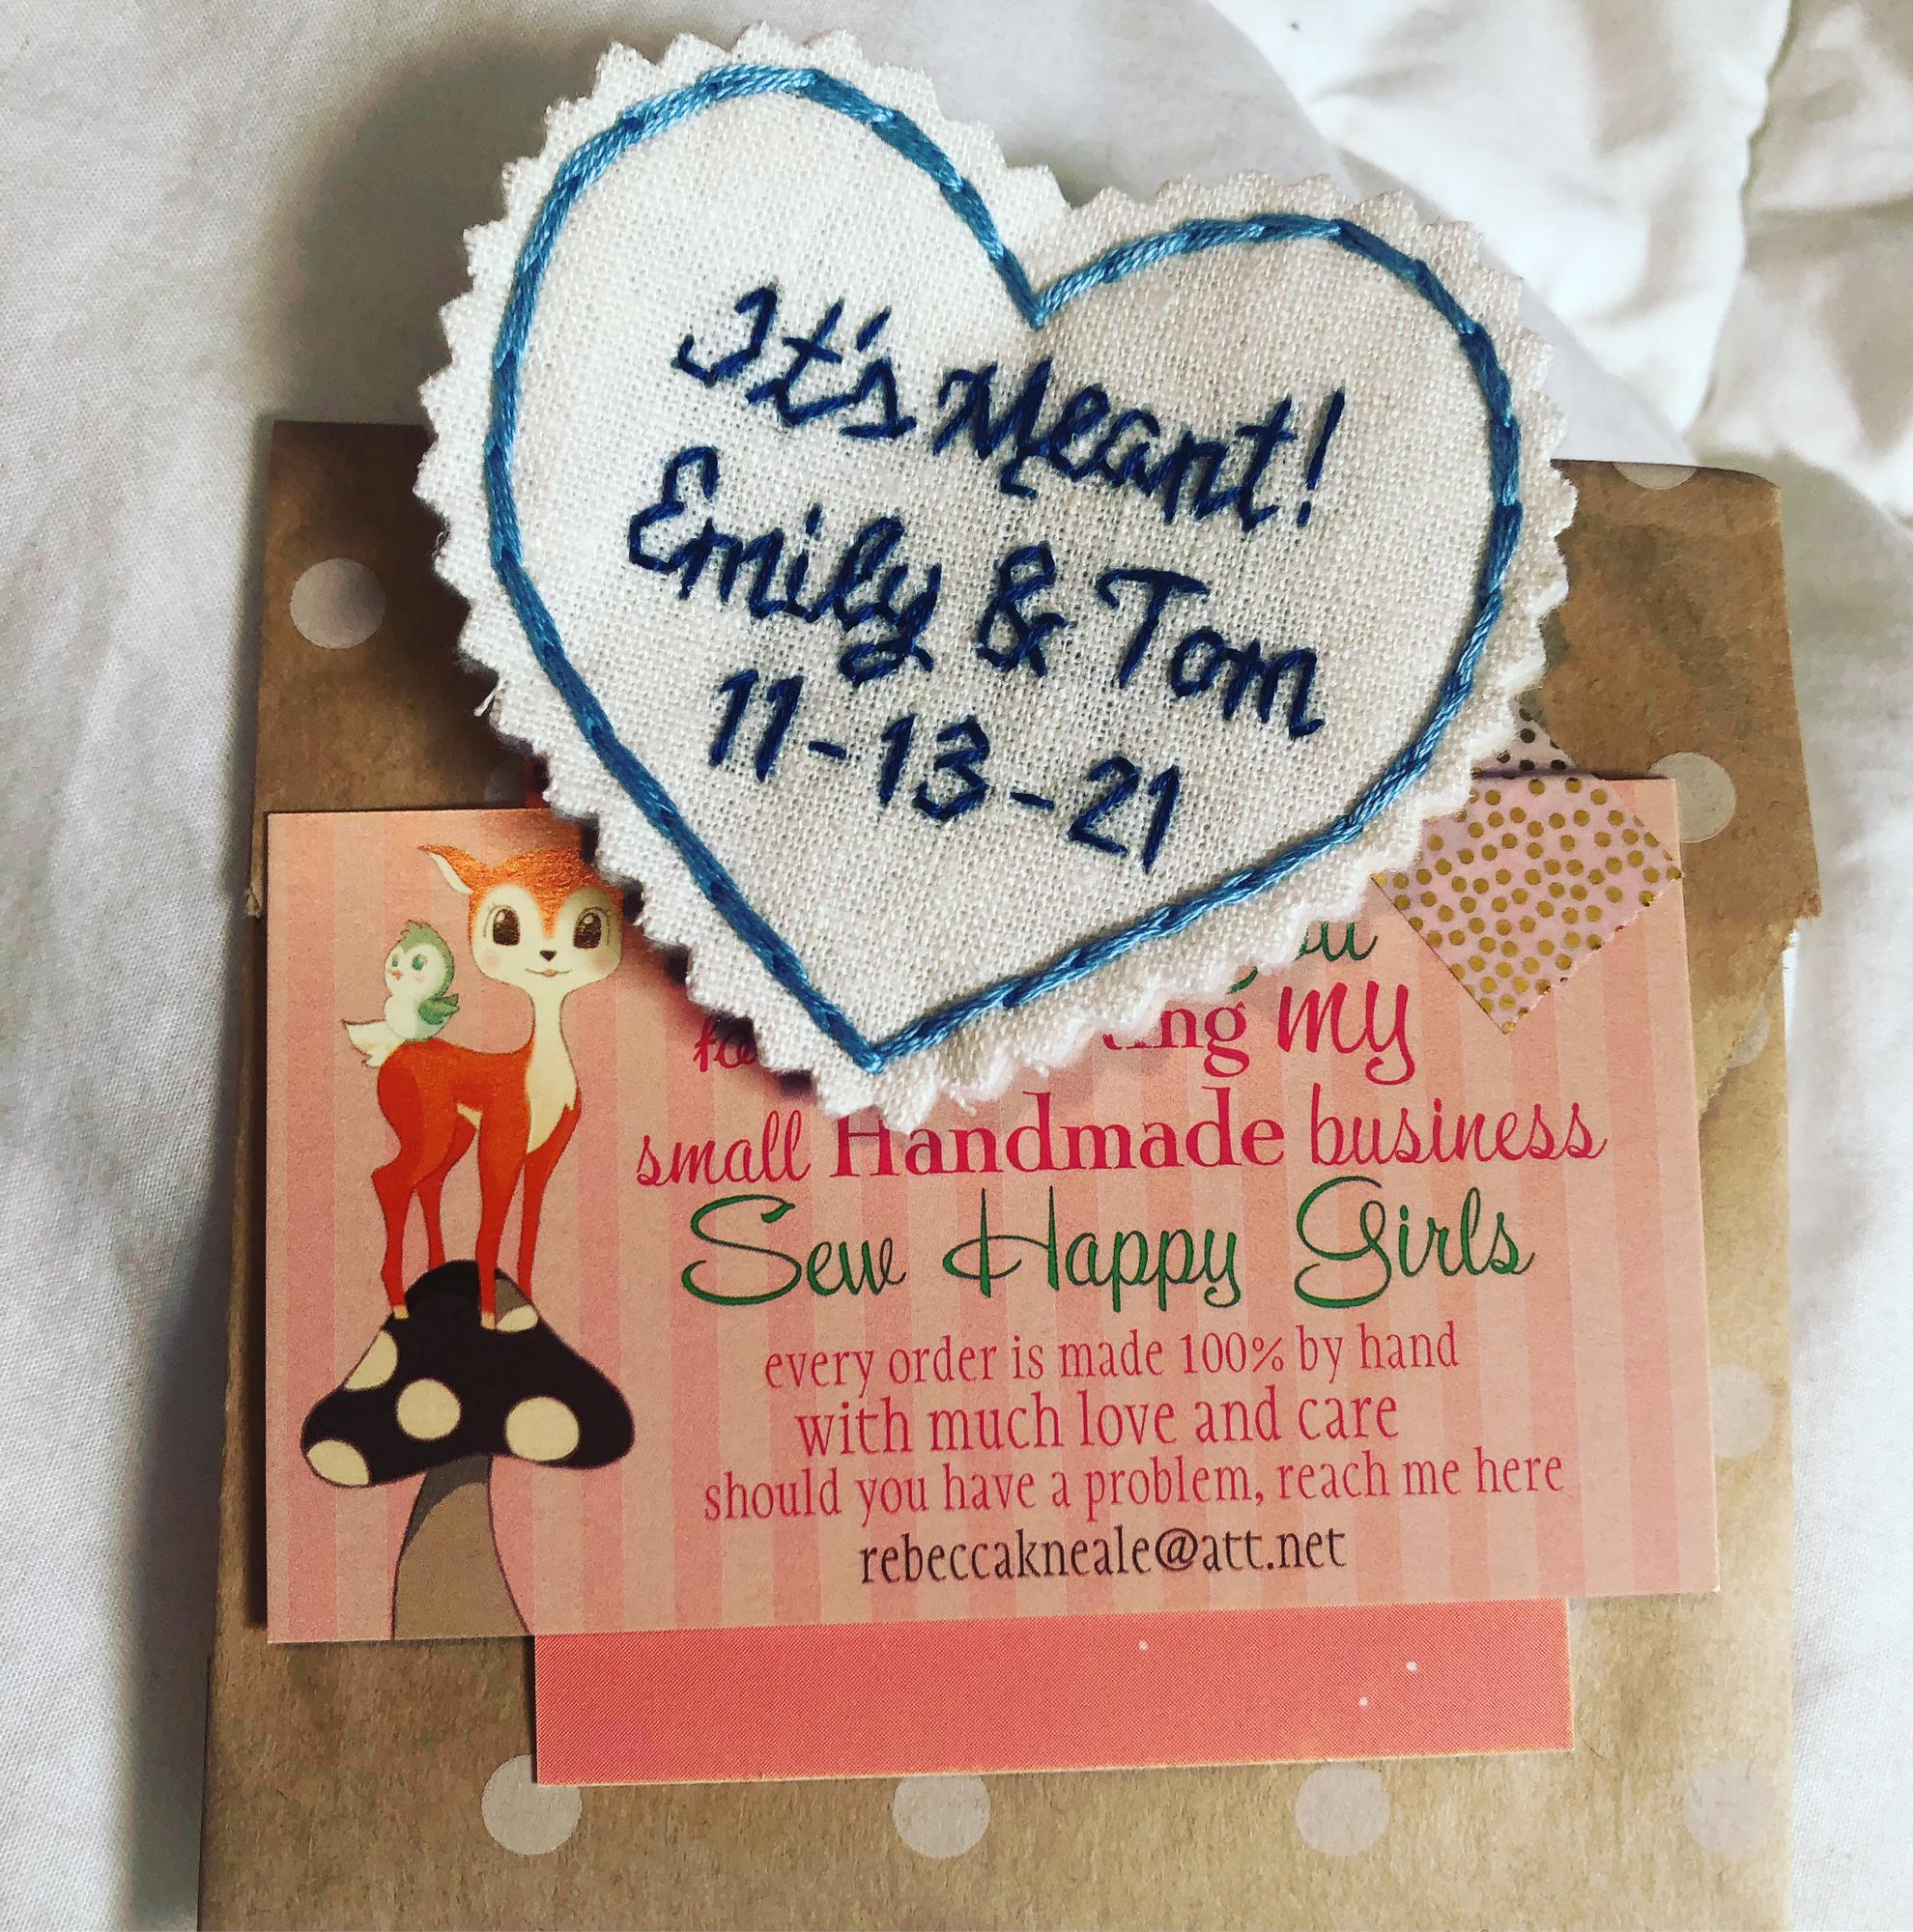 It's Meant!
Emily & Tom
11-13-21
my
small Handmade business
Sew Happy Girls
every order is made 100% by hand
with much love and care
should you have a problem, reach me here
rebeccakneale@att.net